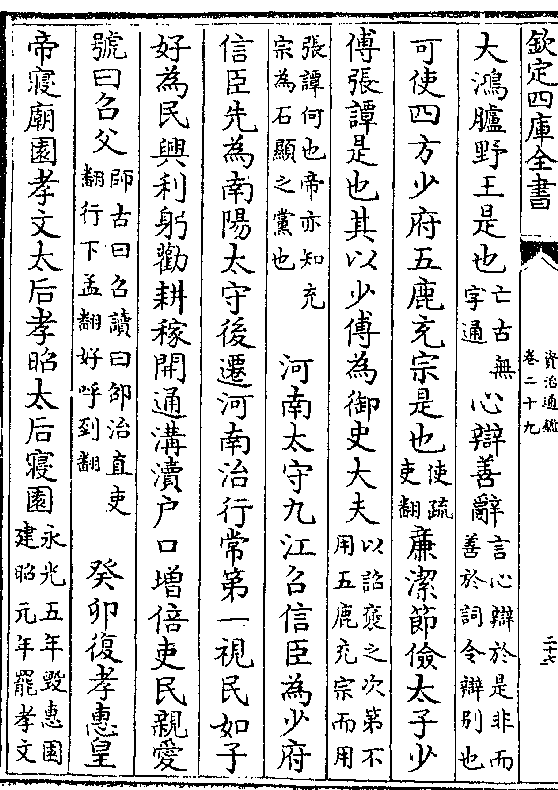 欽定四庫全書
資治通鑑
卷二十九
大鴻臚野王是也亡古無字通心辯善辭言心辯於是非而善於詞令辯别也
可使四方少府五鹿充宗是也使疏吏翻亷潔節儉太子少
傅張譚是也其以少傅為御史大夫以詔褒之次第不用五鹿充宗而用
張譚何也帝亦知充宗為石顯之黨也 河南太守九江召信臣為少府
信臣先為南陽太守後遷河南治行常第一視民如子
好為民興利躬勸耕稼開通溝瀆户口增倍吏民親愛
號曰召父師古曰召讀曰邵治直吏翻行下孟翻好呼到翻 癸卯復孝惠皇
帝寢廟園孝文太后孝昭太后寢園永光五年毁惠園建昭元年罷孝文